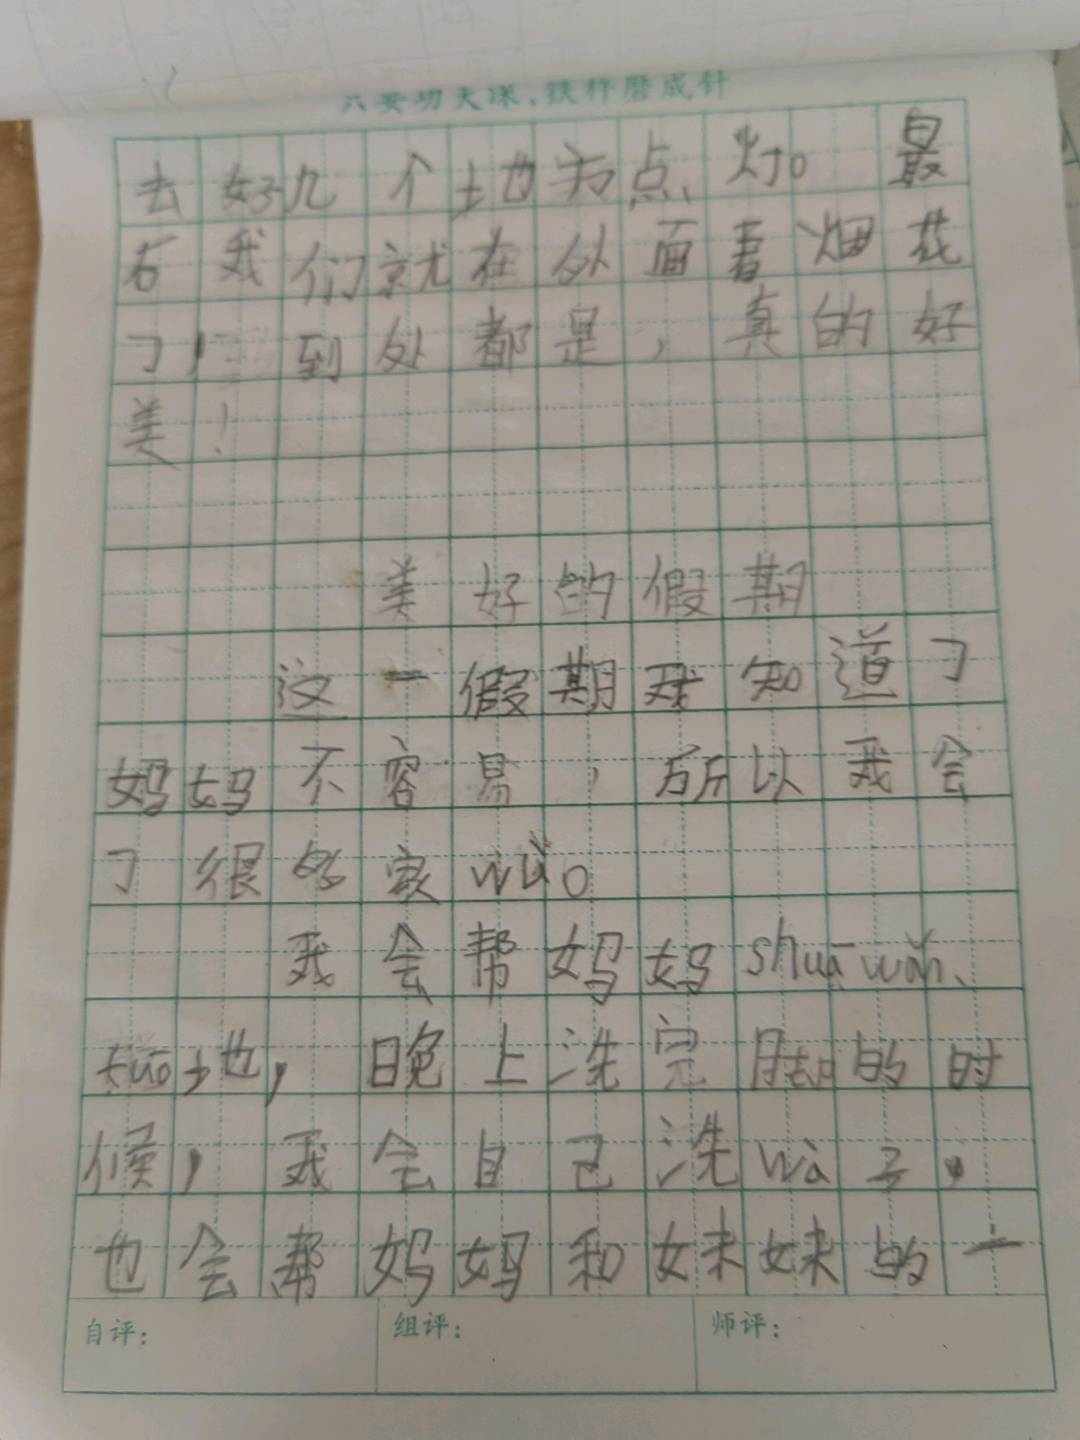 只要功夫深，铁杵磨成针
去好几个地方点灯。最
后我们就在外面看烟花
了，到处都是，真的好
美！
美好的假期
这一假期我知道了
妈妈不容易，所以我会
了很多家wù。
我会帮妈妈shuā wǎn、
tuō地，晚上洗完脚的时
候，我会自己洗wà子，
也会帮妈妈和妹妹的一
自评：
组评：
师评：